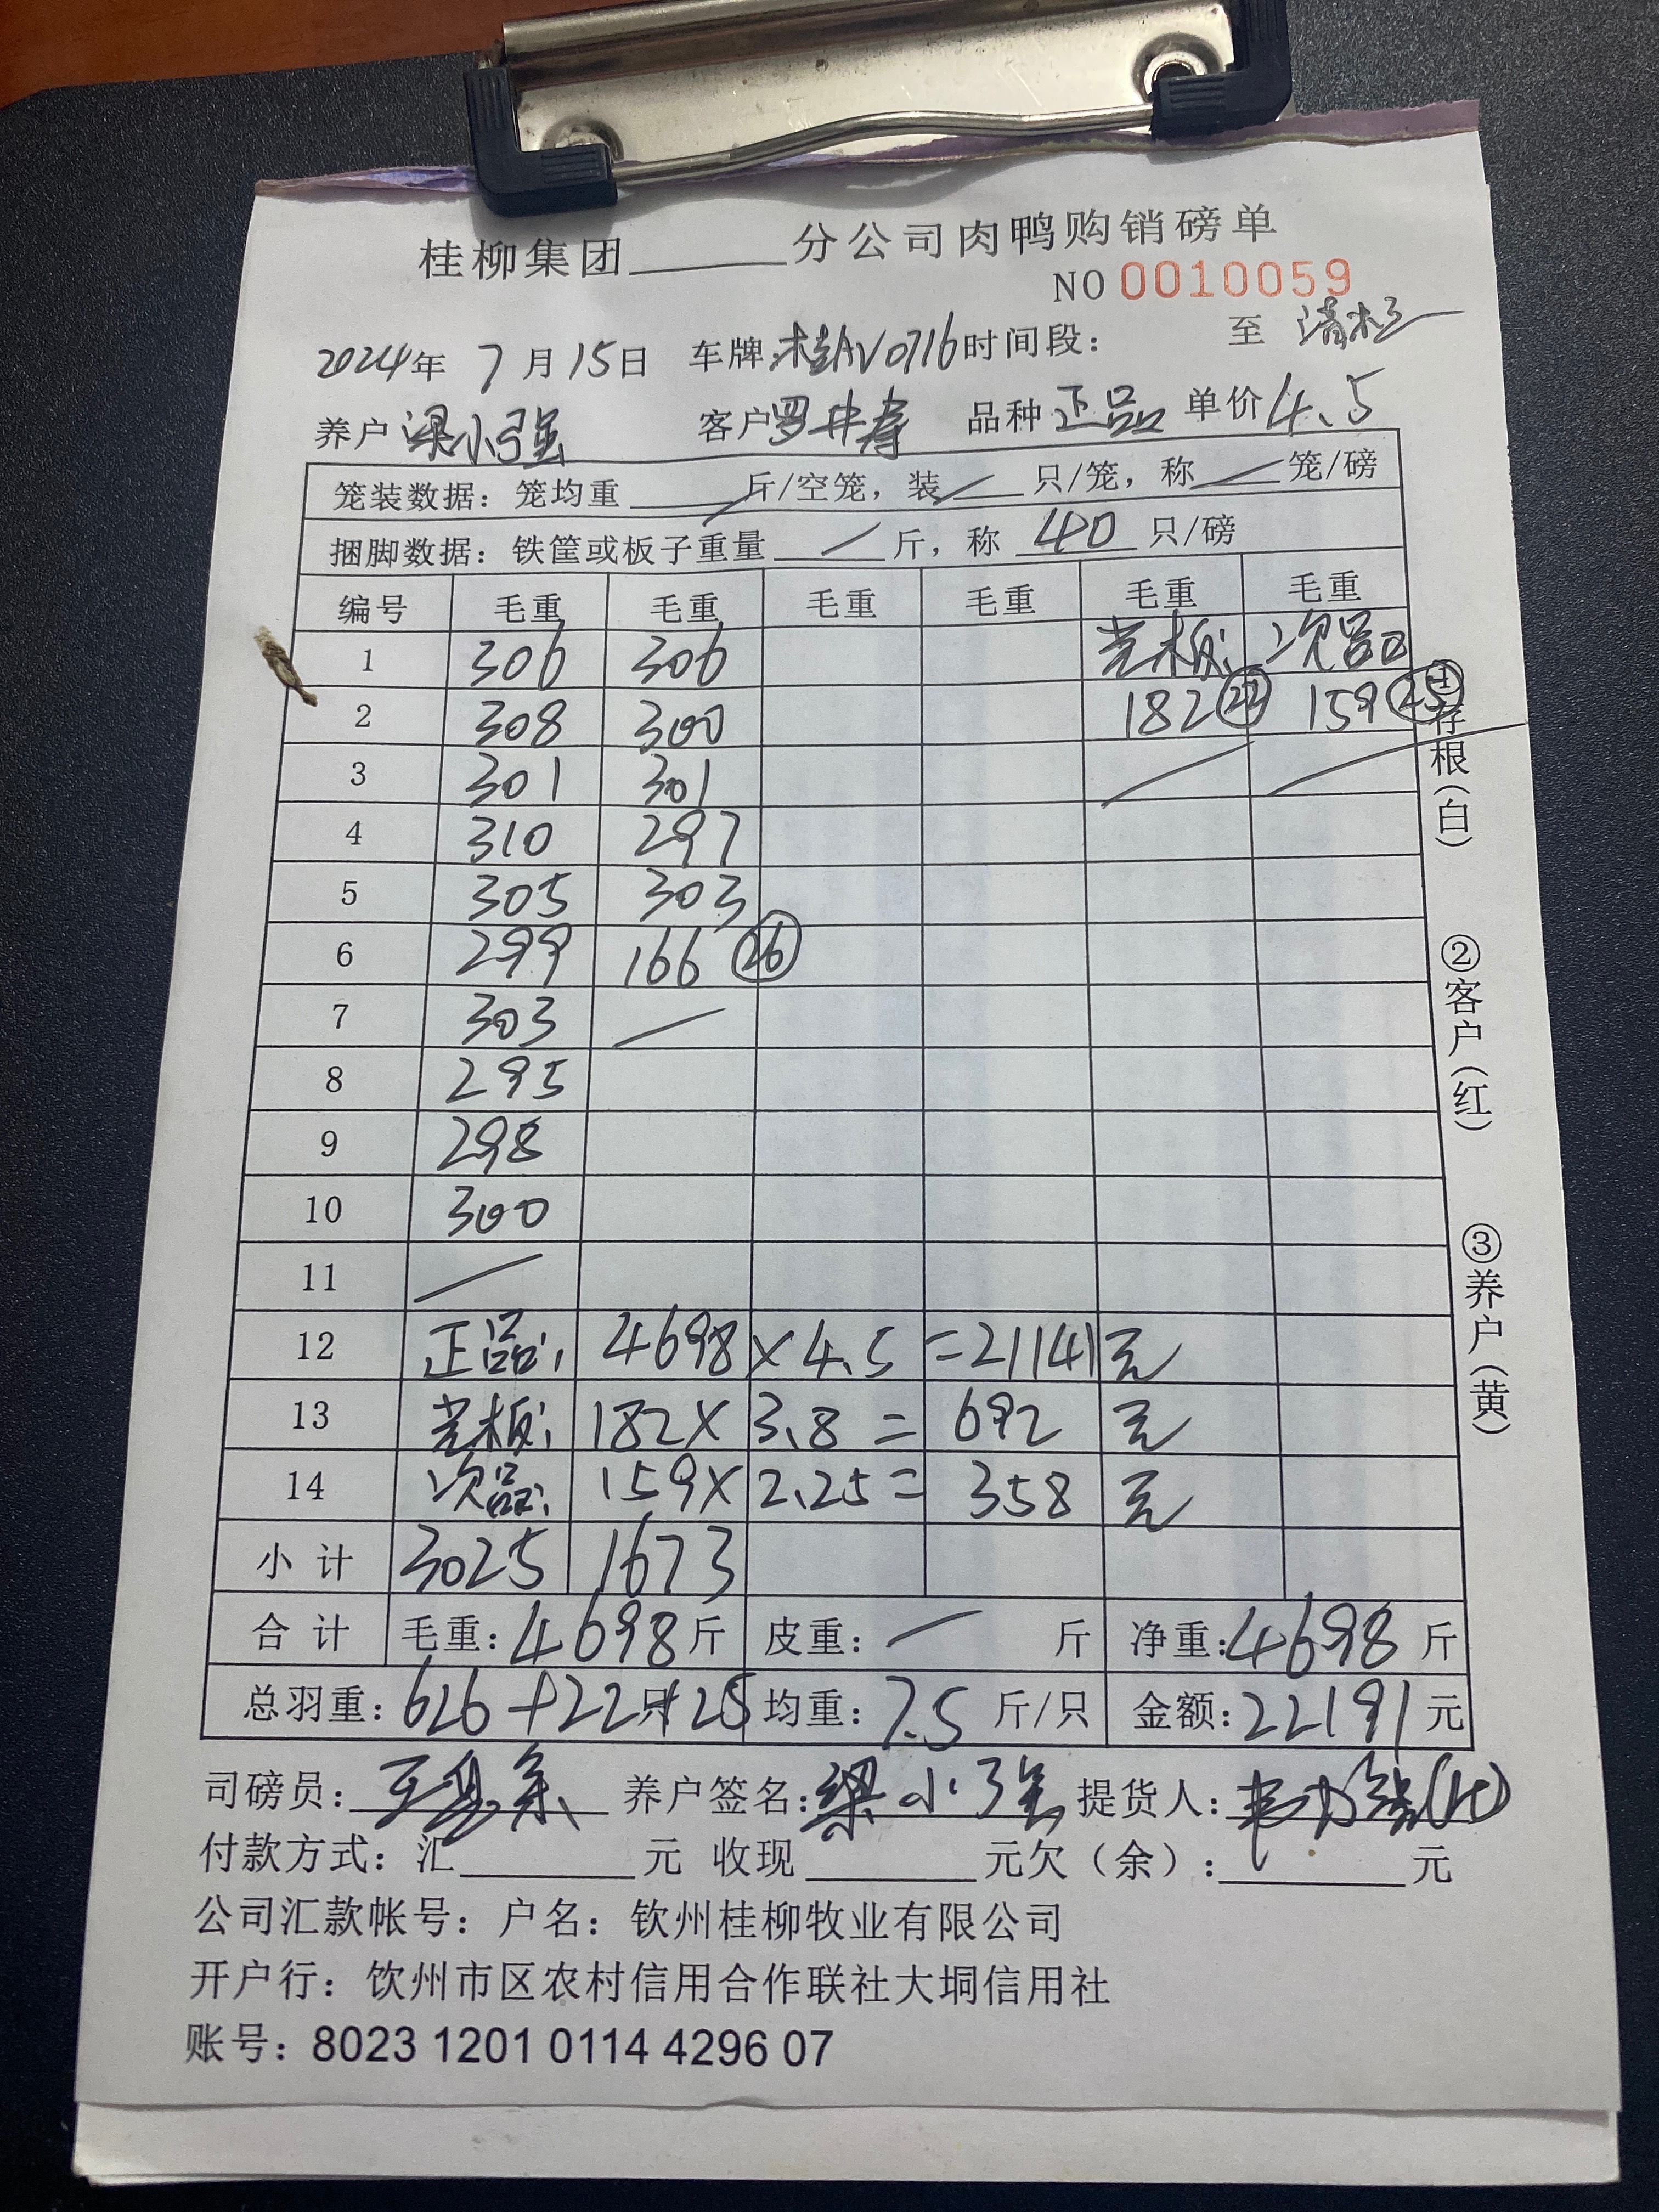 桂柳集团______分公司肉鸭购销磅单
NO 0010059
2024年 7月15日 车牌:桂AV0716 时间段: 至
养户 梁小强 客户 罗 品种 正品 单价 4.5
笼装数据: 笼均重 ／ 斤/空笼, 装 ／ 只/笼, 称 ／ 笼/磅
捆脚数据: 铁筐或板子重量 ／ 斤, 称 40 只/磅
编号 毛重 毛重 毛重 毛重 毛重 毛重
1 306 306 光板: 次品
2 308 300 182 (22) 159 (25)
3 301 301 ／ ／
4 310 297
5 305 303
6 299 166 (26)
7 303 ／
8 295
9 298
10 300
11 ／
12 正品: 4698 × 4.5 = 21141 元
13 光板: 182 × 3.8 = 692 元
14 次品: 159 × 2.25 = 358 元
小计 3025 1673
合计 毛重: 4698 斤 皮重: ／ 斤 净重: 4698 斤
总羽重: 626+22只+25 均重: 7.5 斤/只 金额: 22191 元
司磅员: 养户签名: 梁小强 提货人:
付款方式: 汇______元 收现______元欠(余):______元
公司汇款帐号: 户名: 钦州桂柳牧业有限公司
开户行: 钦州市区农村信用合作联社大垌信用社
账号: 8023 1201 0114 4296 07
①存根(白)
②客户(红)
③养户(黄)